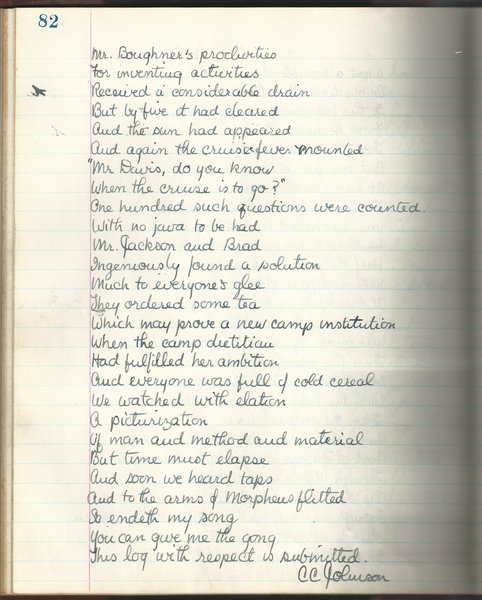 82
Mr. Boughner's proclivities
For inventing activities
Received a considerable drain
But by five it had cleared
And the sun had appeared
And again the cruise fever mounted
"Mr Davis, do you know
When the cruise is to go?"
One hundred such questions were counted.
With no java to be had
Mr. Jackson and Brad
Ingeniously found a solution
Much to everyone's glee
They ordered some tea
Which may prove a new camp institution
When the camp dietitian
Had fulfilled her ambition
And everyone was full of cold cereal
We watched with elation
A picturization
Of man and method and material
But time must elapse
And soon we heard taps
And to the arms of Morpheus flitted
So endeth my song
You can give me the gong
This log with respect is submitted.
C C Johnson